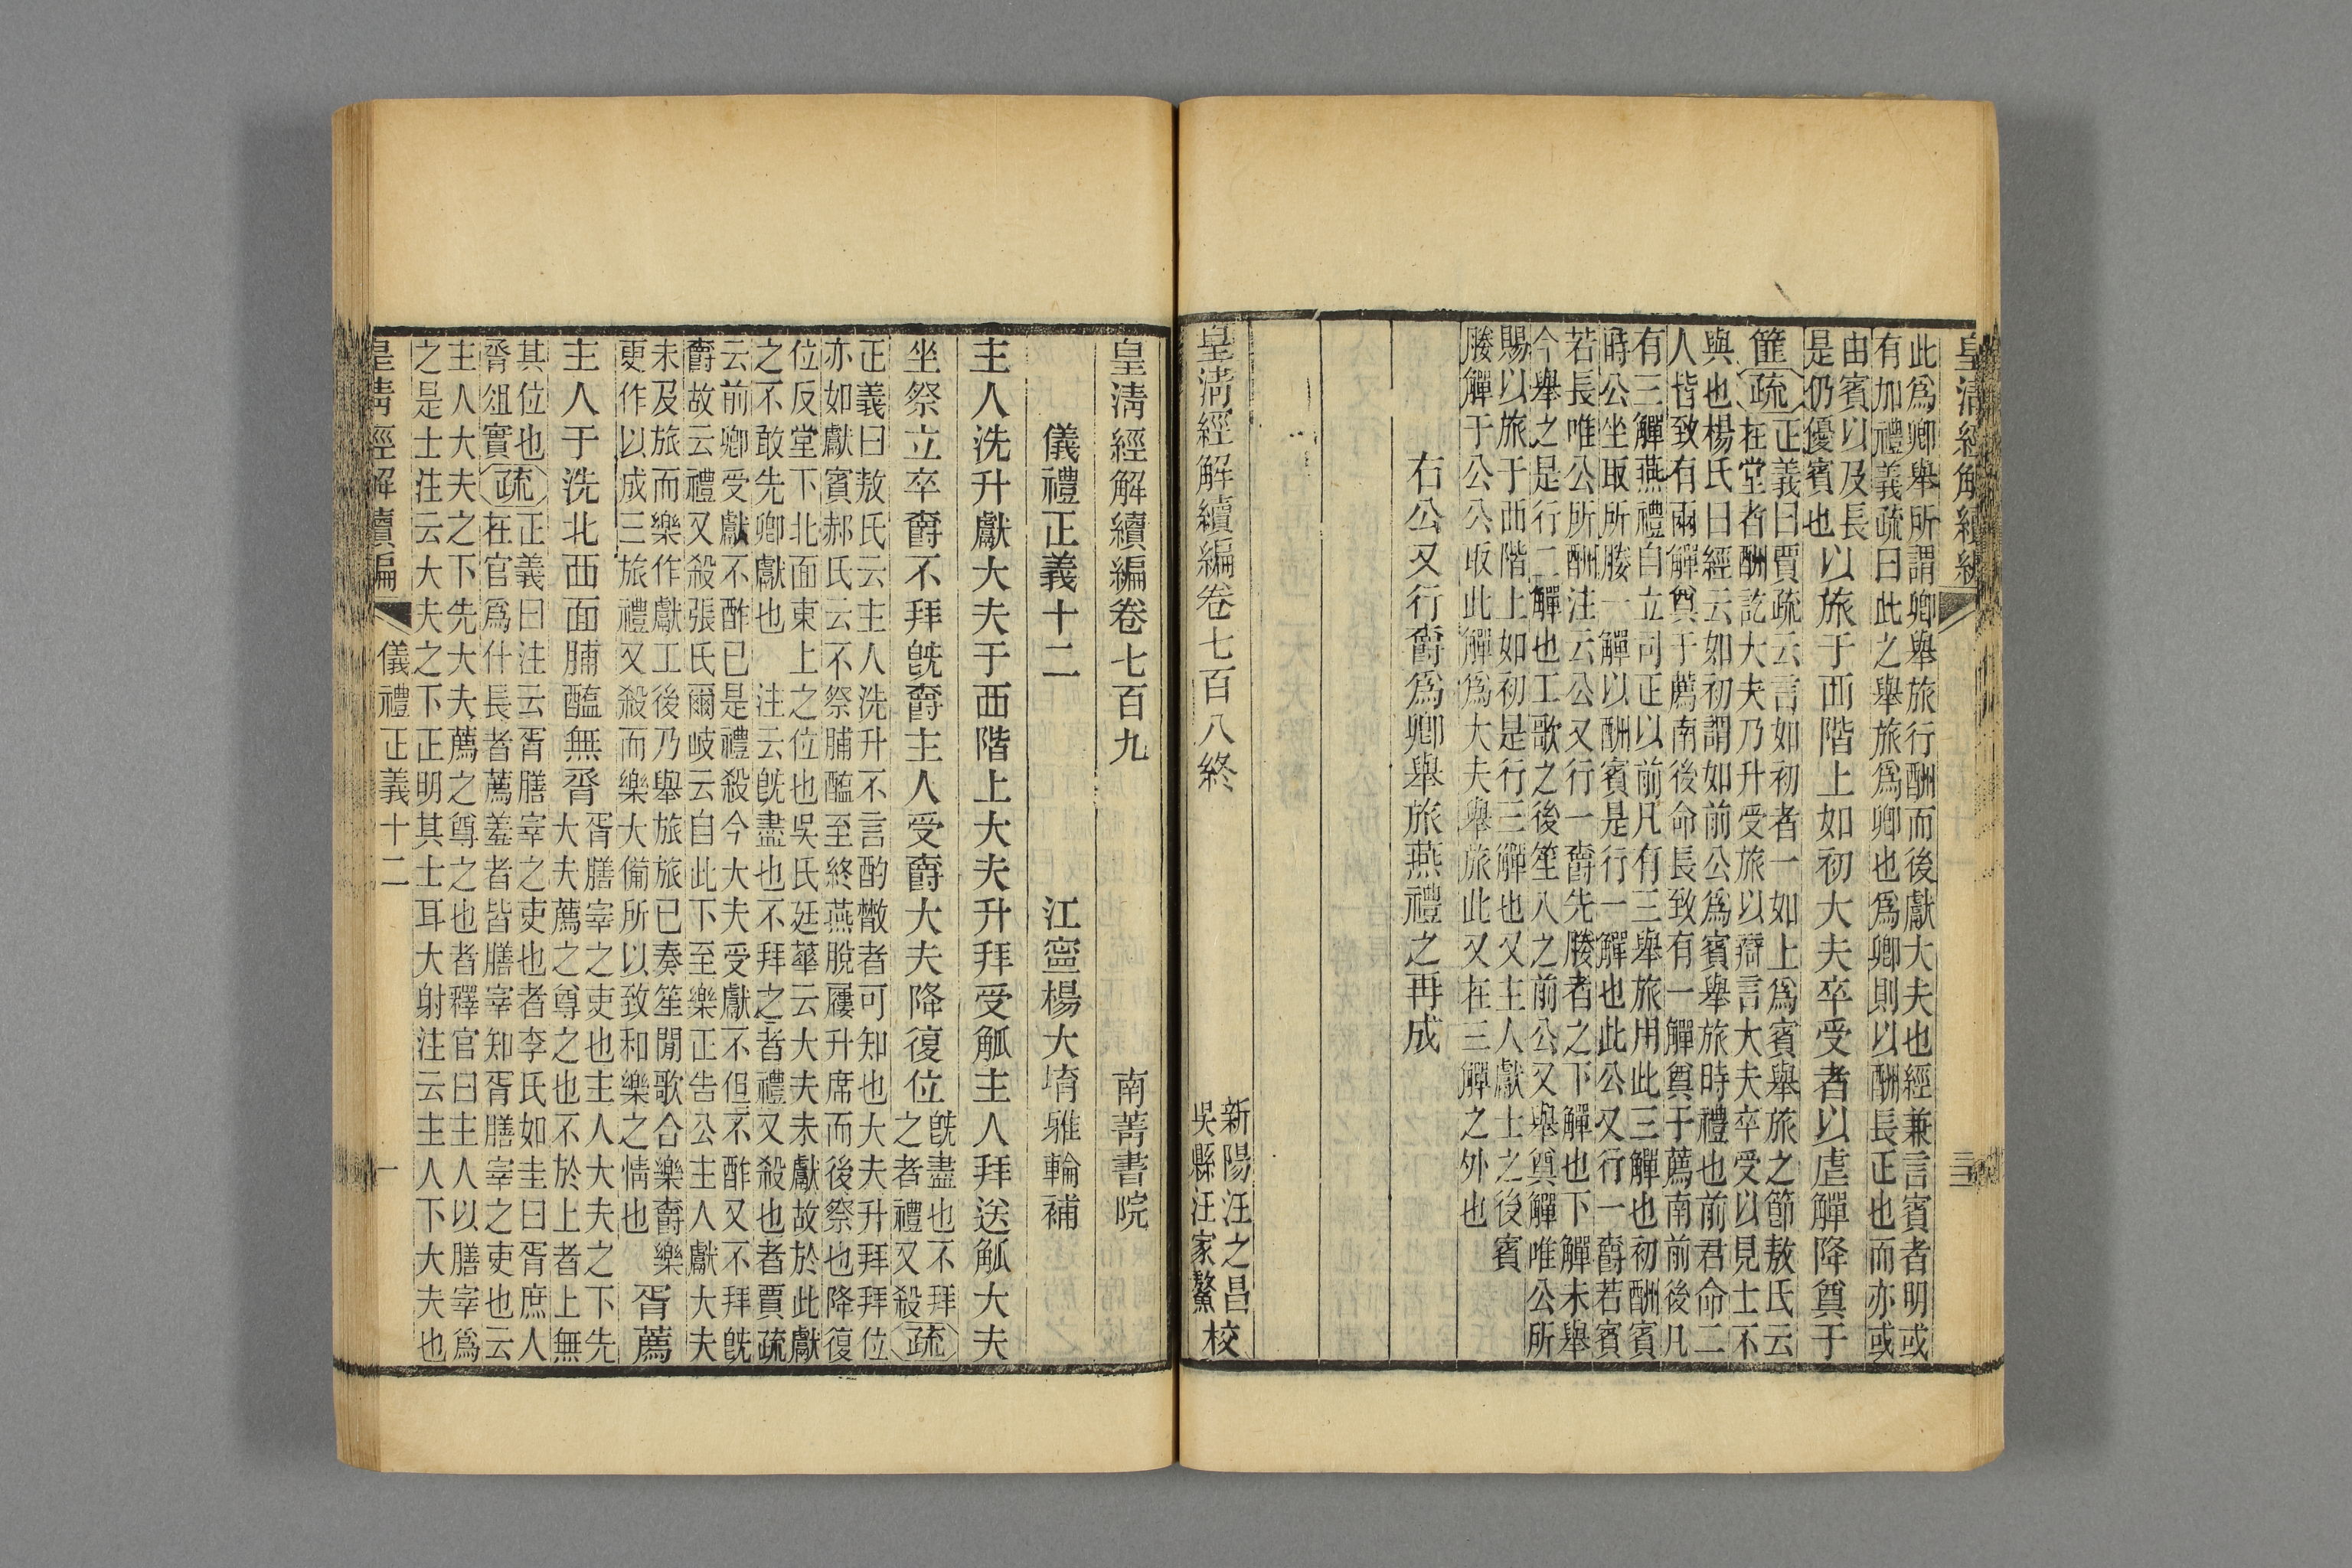 此爲卿舉所謂卿舉旅行酬而後獻大夫也經兼言賓者明或
有加禮義疏曰此之舉旅爲卿也爲卿則以酬長正也而亦或
由賓以及長
是仍優賓也
以旅于西階上如初大夫卒受者以虛觶降奠于
篚疏
正義曰賈疏云言如初者一如上爲賓舉旅之節敖氏云
在堂者酬訖大夫乃升受旅以辯言大夫卒受以見士不
與也楊氏曰經云如初謂如前公爲賓舉旅時禮也前君命二
人皆致有兩觶奠于薦南後命長致有一觶奠于薦南前後凡
有三觶燕禮自立司正以前凡有三舉旅用此三觶也初酬賓
時公坐取所媵一觶以酬賓是行一觶也此公又行一爵若賓
若長唯公所酬注云公又行一爵先媵者之下觶也下觶未舉
今舉之是行二觶也工歌之後笙入之前公又舉奠觶唯公所
賜以旅于西階上如初是行三觶也又主人獻士之後賓
媵觶于公公取此觶爲大夫舉旅此又在三觶之外也
右公又行爵爲卿舉旅燕禮之再成
皇淸經解續編卷七百八終
新陽汪之昌
吳縣汪家鰲
校
皇淸經解續編卷七百九
南菁書院
儀禮正義十二
江寧楊大堉雅輪補
主人洗升獻大夫于西階上大夫升拜受觚主人拜送觚大夫
坐祭立卒爵不拜旣爵主人受爵大夫降復位
旣盡也不拜
之者禮又殺
疏
正義曰敖氏云主人洗升不言酌散者可知也大夫升拜拜位
亦如獻賓郝氏云不祭脯醢至終燕脫屨升席而後祭也降復
位反堂下北面東上之位也吳氏廷華云大夫未獻故於此獻
之不敢先卿獻也 注云旣盡也不拜之者禮又殺也者賈疏
云前卿受獻不酢已是禮殺今大夫受獻不但不酢又不拜旣
爵故云禮又殺張氏爾岐云自此下至樂正告公主人獻大夫
未及旅而樂作獻工後乃舉旅旅已奏笙閒歌合樂爵樂
更作以成三旅禮又殺而樂大備所以致和樂之情也
胥薦
主人于洗北西面脯醢無脀
胥膳宰之吏也主人大夫之下先
大夫薦之尊之也不於上者上無
其位也
脀俎實
疏
正義曰注云胥膳宰之吏也者李氏如圭曰胥庶人
在官爲什長者薦羞者皆膳宰知胥膳宰之吏也云
主人大夫之下先大夫薦之尊之也者釋官曰主人以膳宰爲
之是士注云大夫之下正明其士耳大射注云主人下大夫也
皇淸經解續編
儀禮正義十二
一